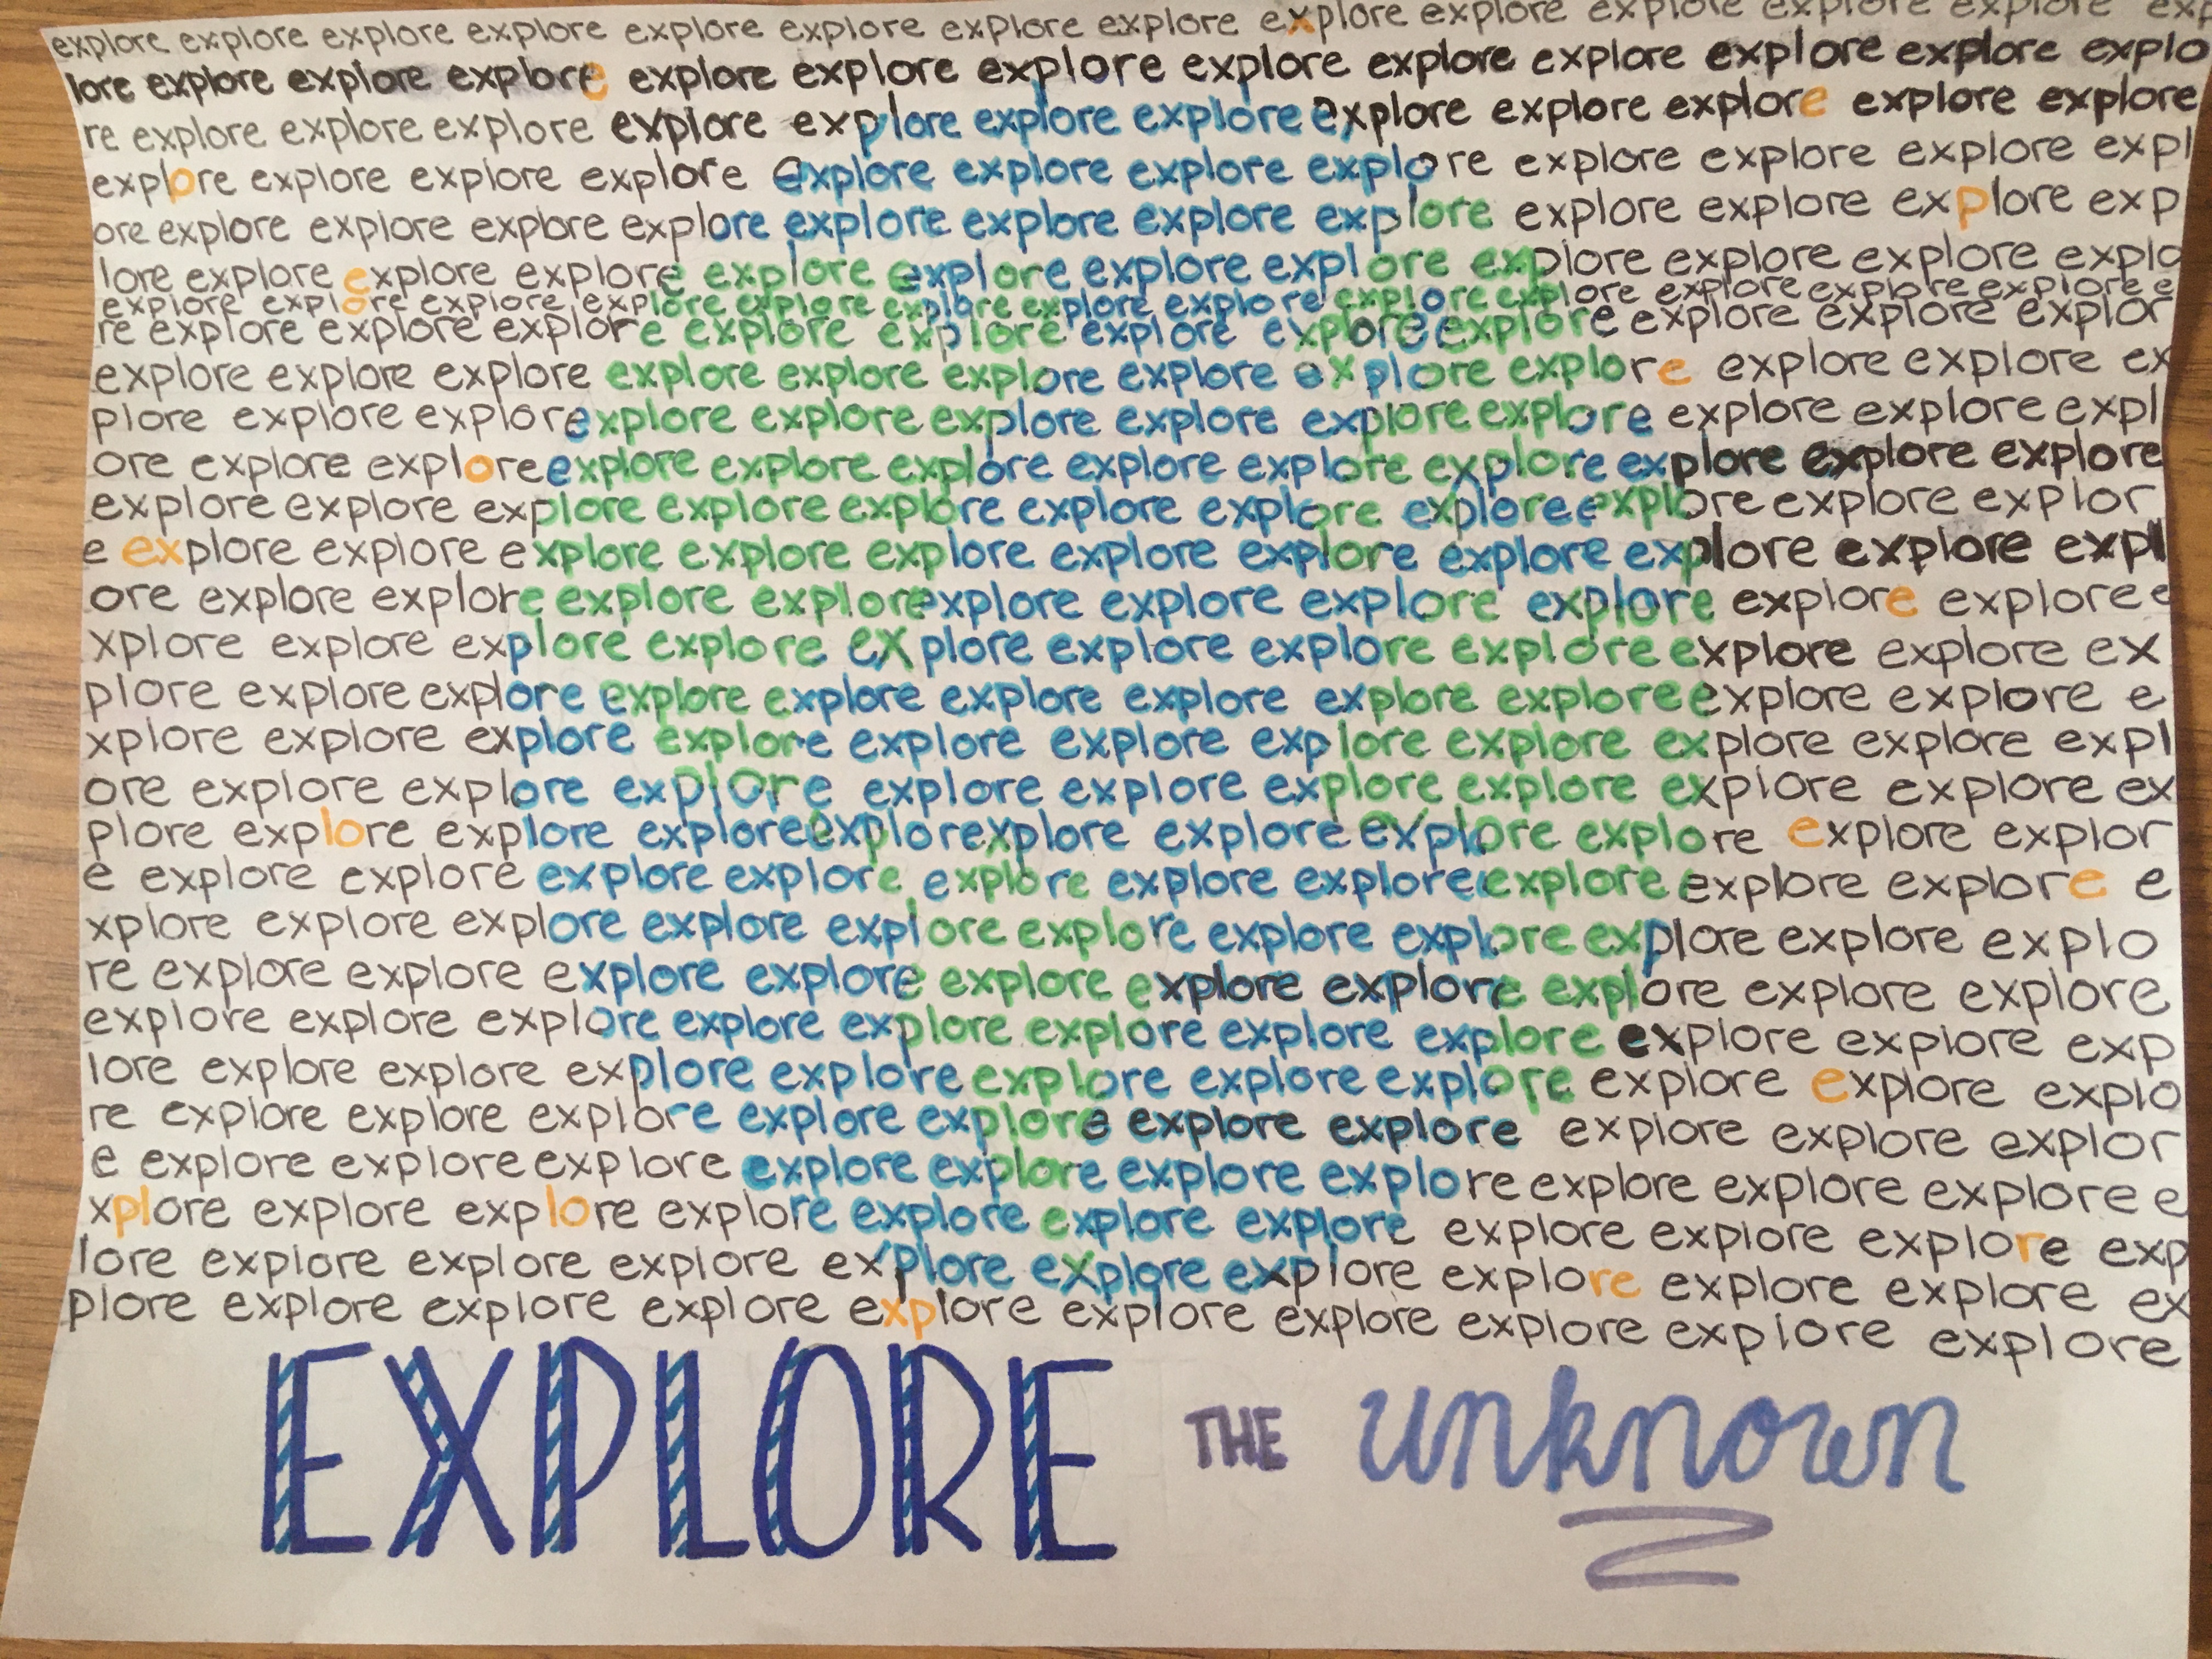 explore explore explore explore explore explore explore explore explore explore explore explore explore exp
lore explore explore explore explore explore explore explore explore explore explore explore explo
re explore explore explore explore explore explore explore explore explore explore explore explore
explore explore explore explore explore explore explore explore explore explore explore expl
ore explore explore explore explore explore explore explore explore explore explore exp
lore explore explore explore explore explore explore explore explore explore explore explo
explore explore explore explore explore explore explore explore explore explore explore explore explore e
re explore explore explore explore explore explore explore explore explore explore explor
explore explore explore explore explore explore explore explore explore explore explore ex
plore explore explore explore explore explore explore explore explore explore explore expl
ore explore explore explore explore explore explore explore explore explore explore explore
explore explore explore explore explore explore explore explore explore e explore explore explor
e explore explore explore explore explore explore explore explore explore explore expl
ore explore explore explore explore explore explore explore explore explore explore e
xplore explore explore explore explore explore explore explore explore explore ex
plore explore explore explore explore explore explore explore explore explore explore e
xplore explore explore explore explore explore explore explore explore explore expl
ore explore explore explore explore explore explore explore explore explore ex
plore explore explore explore explore xplore explore explore explore explore explor
e explore explore explore explore explore explore explore explore explore explore e
xplore explore explore explore explore explore explore explore explore explore explo
re explore explore explore explore explore explore explore explore explore explore
explore explore explore explore explore explore explore explore explore explore exp
lore explore explore explore explore explore explore explore explore explore explo
re explore explore explore explore explore explore explore explore explore explor
e explore explore explore explore explore explore explore explore explore explore e
xplore explore explore explore explore explore explore explore explore explore exp
lore explore explore explore explore explore explore explore explore explore ex
plore explore explore explore explore explore explore explore explore explore
EXPLORE THE unknown